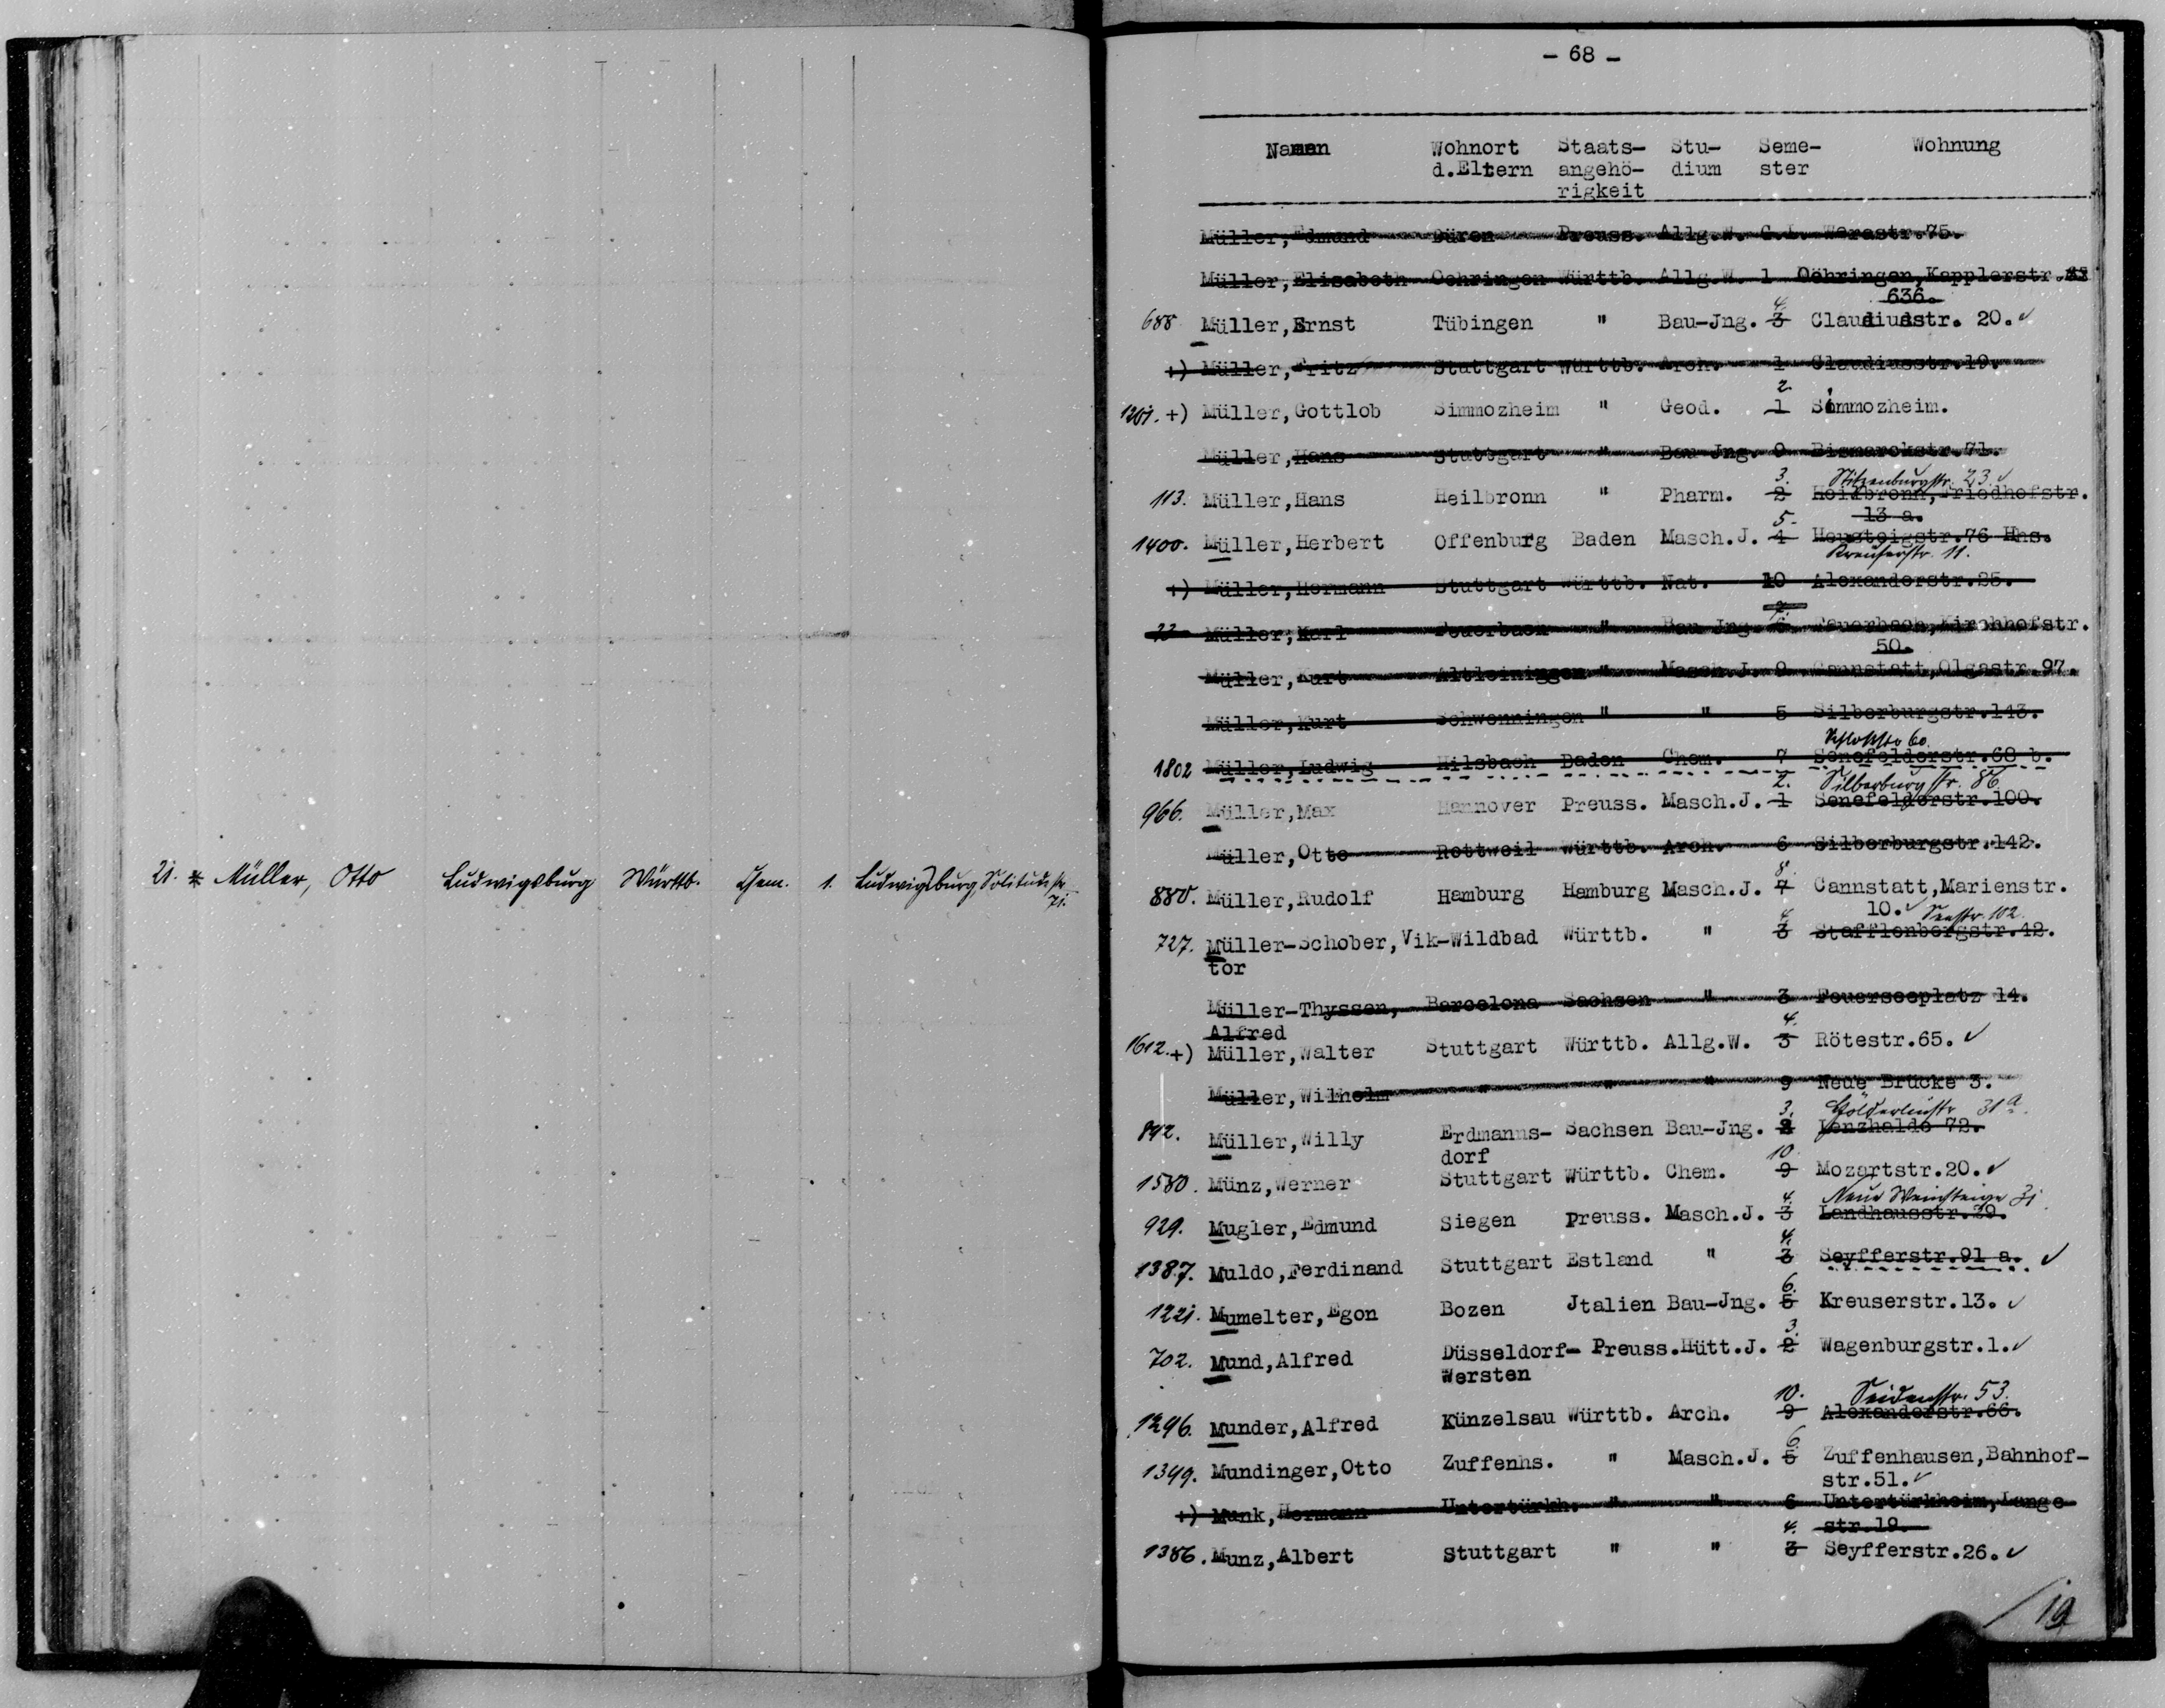 21. * Müller, Otto Ludwigsburg Württb. Chem. 1. Ludwigsburg, Solitudestr.
71.
- 68 -
Namen Wohnort Staats- Stu- Seme- Wohnung
d.Eltern angehö- dium ster
rigkeit
Müller,Edmund Düren Preuss. Allg.W. G.L. Werastr.75.
Müller,Elisabeth Oehringen Württb. Allg.W. 1 Oehringen,Kapplerstr.
636.
4.
688 Müller,Ernst Tübingen " Bau-Jng. 3 Claudiusstr. 20. ✓
+) Müller,Fritz Stuttgart Württb. Arch. 1 Claudiusstr.19.
2
1201. +) Müller,Gottlob Simmozheim " Geod. 1 Simmozheim.
Müller,Hans Stuttgart " Bau-Jng. 9 Bismarckstr.71.
3. Stitzenburgstr. 23. ✓
113. Müller,Hans Heilbronn " Pharm. 2 Heilbronn,Friedhofstr.
13 a.
5.
1400. Müller,Herbert Offenburg Baden Masch.J. 4 Heusteigstr.76 Hhs.
Kreuserstr. 11.
+) Müller,Hermann Stuttgart Württb. Nat. 10 Alexanderstr.25.
7.
33 Müller,Karl Feuerbach " Bau-Jng. Feuerbach,Kirchhofstr.
50.
Müller,Kurt Altleiningen " Masch.J. 9 Cannstatt,Olgastr.97.
Müller,Kurt Schwenningen " " 5 Silberburgstr.143.
Schloßstr. 60.
1802 Müller,Ludwig Hilsbach Baden Chem. 7 Senefelderstr.68 b.
2. Silberburgstr. 86.
966. Müller,Max Hannover Preuss. Masch.J. 1 Senefelderstr.100.
Müller,Otto Rottweil Württb. Arch. 6 Silberburgstr.142.
8.
880. Müller,Rudolf Hamburg Hamburg Masch.J. 7 Cannstatt,Marienstr.
10. ✓
4. Seestr. 102.
727. Müller-Schober,Vik-Wildbad Württb. " 3 Stafflenbergstr.42.
tor
Müller-Thyssen, Barcelona Sachsen " 3 Feuerseeplatz 14.
Alfred
4.
1612. +) Müller,Walter Stuttgart Württb. Allg.W. 3 Rötestr.65. ✓
Müller,Wilhelm " " " 9 Neue Brücke 3.
3. Hölderlinstr. 31a.
892. Müller,Willy Erdmanns- Sachsen Bau-Jng. 2 Lenzhalde 72.
dorf
10.
1580. Münz,Werner Stuttgart Württb. Chem. 9 Mozartstr.20. ✓
4. Neue Weinsteige 31.
929. Mugler,Edmund Siegen Preuss. Masch.J. 3 Landhausstr.29.
4.
1387. Muldo,Ferdinand Stuttgart Estland " 3 Seyfferstr.91 a. ✓
6.
1221. Mumelter,Egon Bozen Jtalien Bau-Jng. 5 Kreuserstr.13. ✓
3.
702. Mund,Alfred Düsseldorf- Preuss.Hütt.J. 2 Wagenburgstr.1. ✓
Wersten
10. Seidenstr. 53.
1296. Munder,Alfred Künzelsau Württb. Arch. 9 Alexanderstr.66.
6.
1349. Mundinger,Otto Zuffenhs. " Masch.J. 5 Zuffenhausen,Bahnhof-
str.51. ✓
+) Munk,Hermann Untertürkh. " " 6 Untertürkheim,Lange
str.19.
4.
1386. Munz,Albert Stuttgart " " 3 Seyfferstr.26. ✓
19